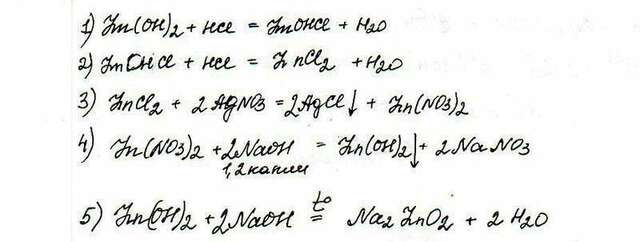 1) Zn(OH)2 + HCl = ZnOHCl + H2O
2) ZnOHCl + HCl = ZnCl2 + H2O
3) ZnCl2 + 2AgNO3 = 2AgCl↓ + Zn(NO3)2
4) Zn(NO3)2 + 2NaOH = Zn(OH)2↓ + 2NaNO3
1,2 капли
5) Zn(OH)2 + 2NaOH t° = Na2ZnO2 + 2H2O